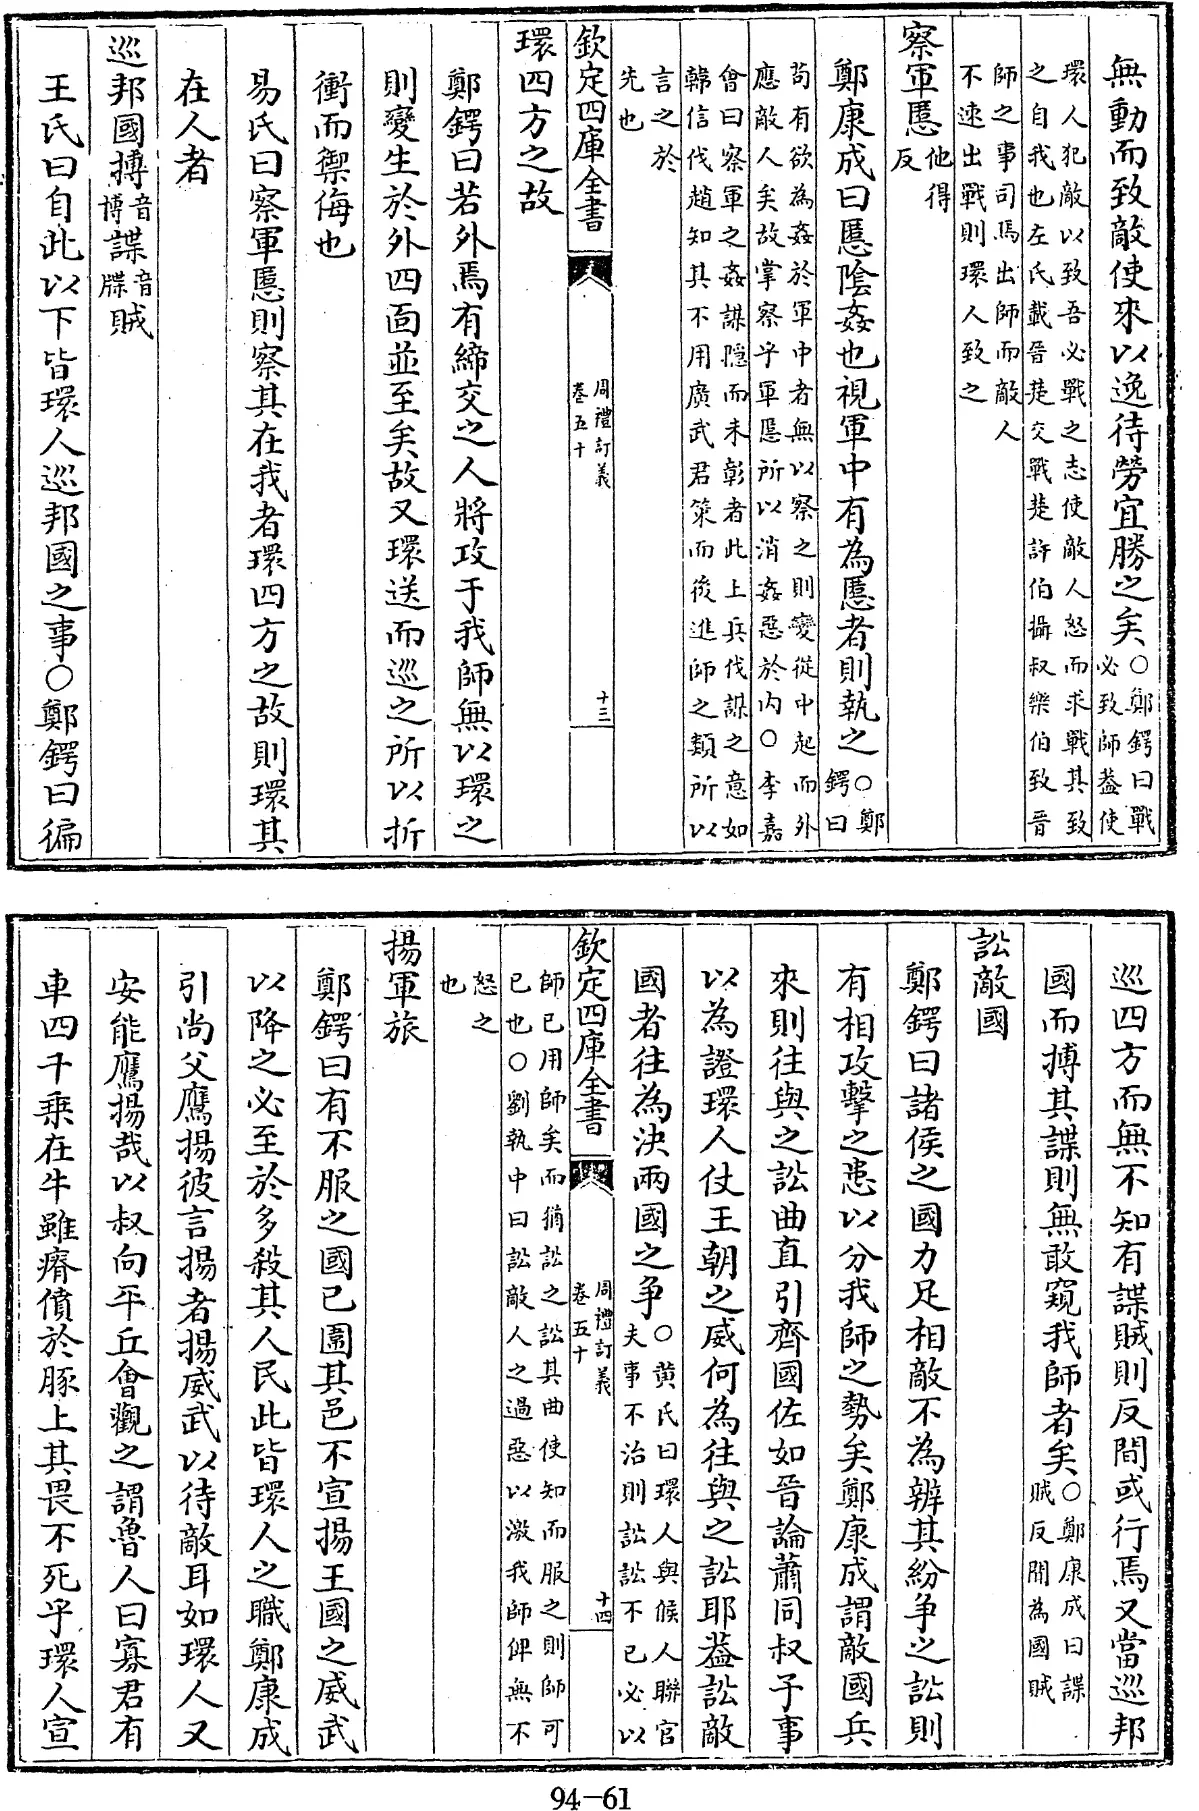 無動而致敵使來以逸待勞宜勝之矣○鄭鍔曰戰必致師葢使
環人犯敵以致吾必戰之志使敵人怒而求戰其致之自我也左氏載晉楚交戰楚許伯攝叔樂伯致晉
師之事司馬出師而敵人不速出戰則環人致之
察軍慝他得反
鄭康成曰慝陰姦也視軍中有為慝者則執之○鄭鍔曰
苟有欲為姦於軍中者無以察之則變從中起而外應敵人矣故掌察乎軍慝所以消姦惡於内○李嘉
會曰察軍之姦謀隠而未彰者此上兵伐謀之意如韓信伐趙知其不用廣武君策而後進師之類所以
言之於先也
欽定四庫全書 周禮訂義 卷五十 十三
環四方之故
鄭鍔曰若外焉有締交之人將攻于我師無以環之
則變生於外四面並至矣故又環送而巡之所以折
衝而禦侮也
易氏曰察軍慝則察其在我者環四方之故則環其
在人者
巡邦國搏音博諜音牒賊
王氏曰自此以下皆環人巡邦國之事○鄭鍔曰徧
巡四方而無不知有諜賊則反間或行焉又當巡邦
國而搏其諜則無敢窺我師者矣○鄭康成曰諜賊反間為國賊
訟敵國
鄭鍔曰諸侯之國力足相敵不為辨其紛争之訟則
有相攻擊之患以分我師之勢矣鄭康成謂敵國兵
來則往與之訟曲直引齊國佐如晉論蕭同叔子事
以為證環人仗王朝之威何為往與之訟耶葢訟敵
國者往為决兩國之争○黄氏曰環人與候人聯官夫事不治則訟訟不已必以
欽定四庫全書 周禮訂義 卷五十 十四
師已用師矣而猶訟之訟其曲使知而服之則師可已也○劉執中曰訟敵人之過惡以激我師俾無不
怒之也
揚軍旅
鄭鍔曰有不服之國已圍其邑不宣揚王國之威武
以降之必至於多殺其人民此皆環人之職鄭康成
引尚父鷹揚彼言揚者揚威武以待敵耳如環人又
安能鷹揚哉以叔向平丘會觀之謂魯人曰寡君有
車四千乗在牛雖瘠僨於豚上其畏不死乎環人宣
94-61